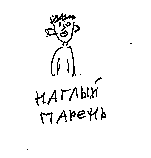 НАГЛЫЙ
ПАРЕНЬ